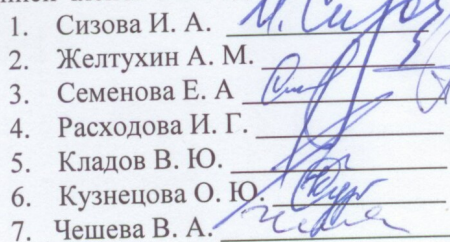 1. Сизова И. А.
2. Желтухин А. М.
3. Семенова Е. А
4. Расходова И. Г.
5. Кладов В. Ю.
6. Кузнецова О. Ю.
7. Чешева В. А.